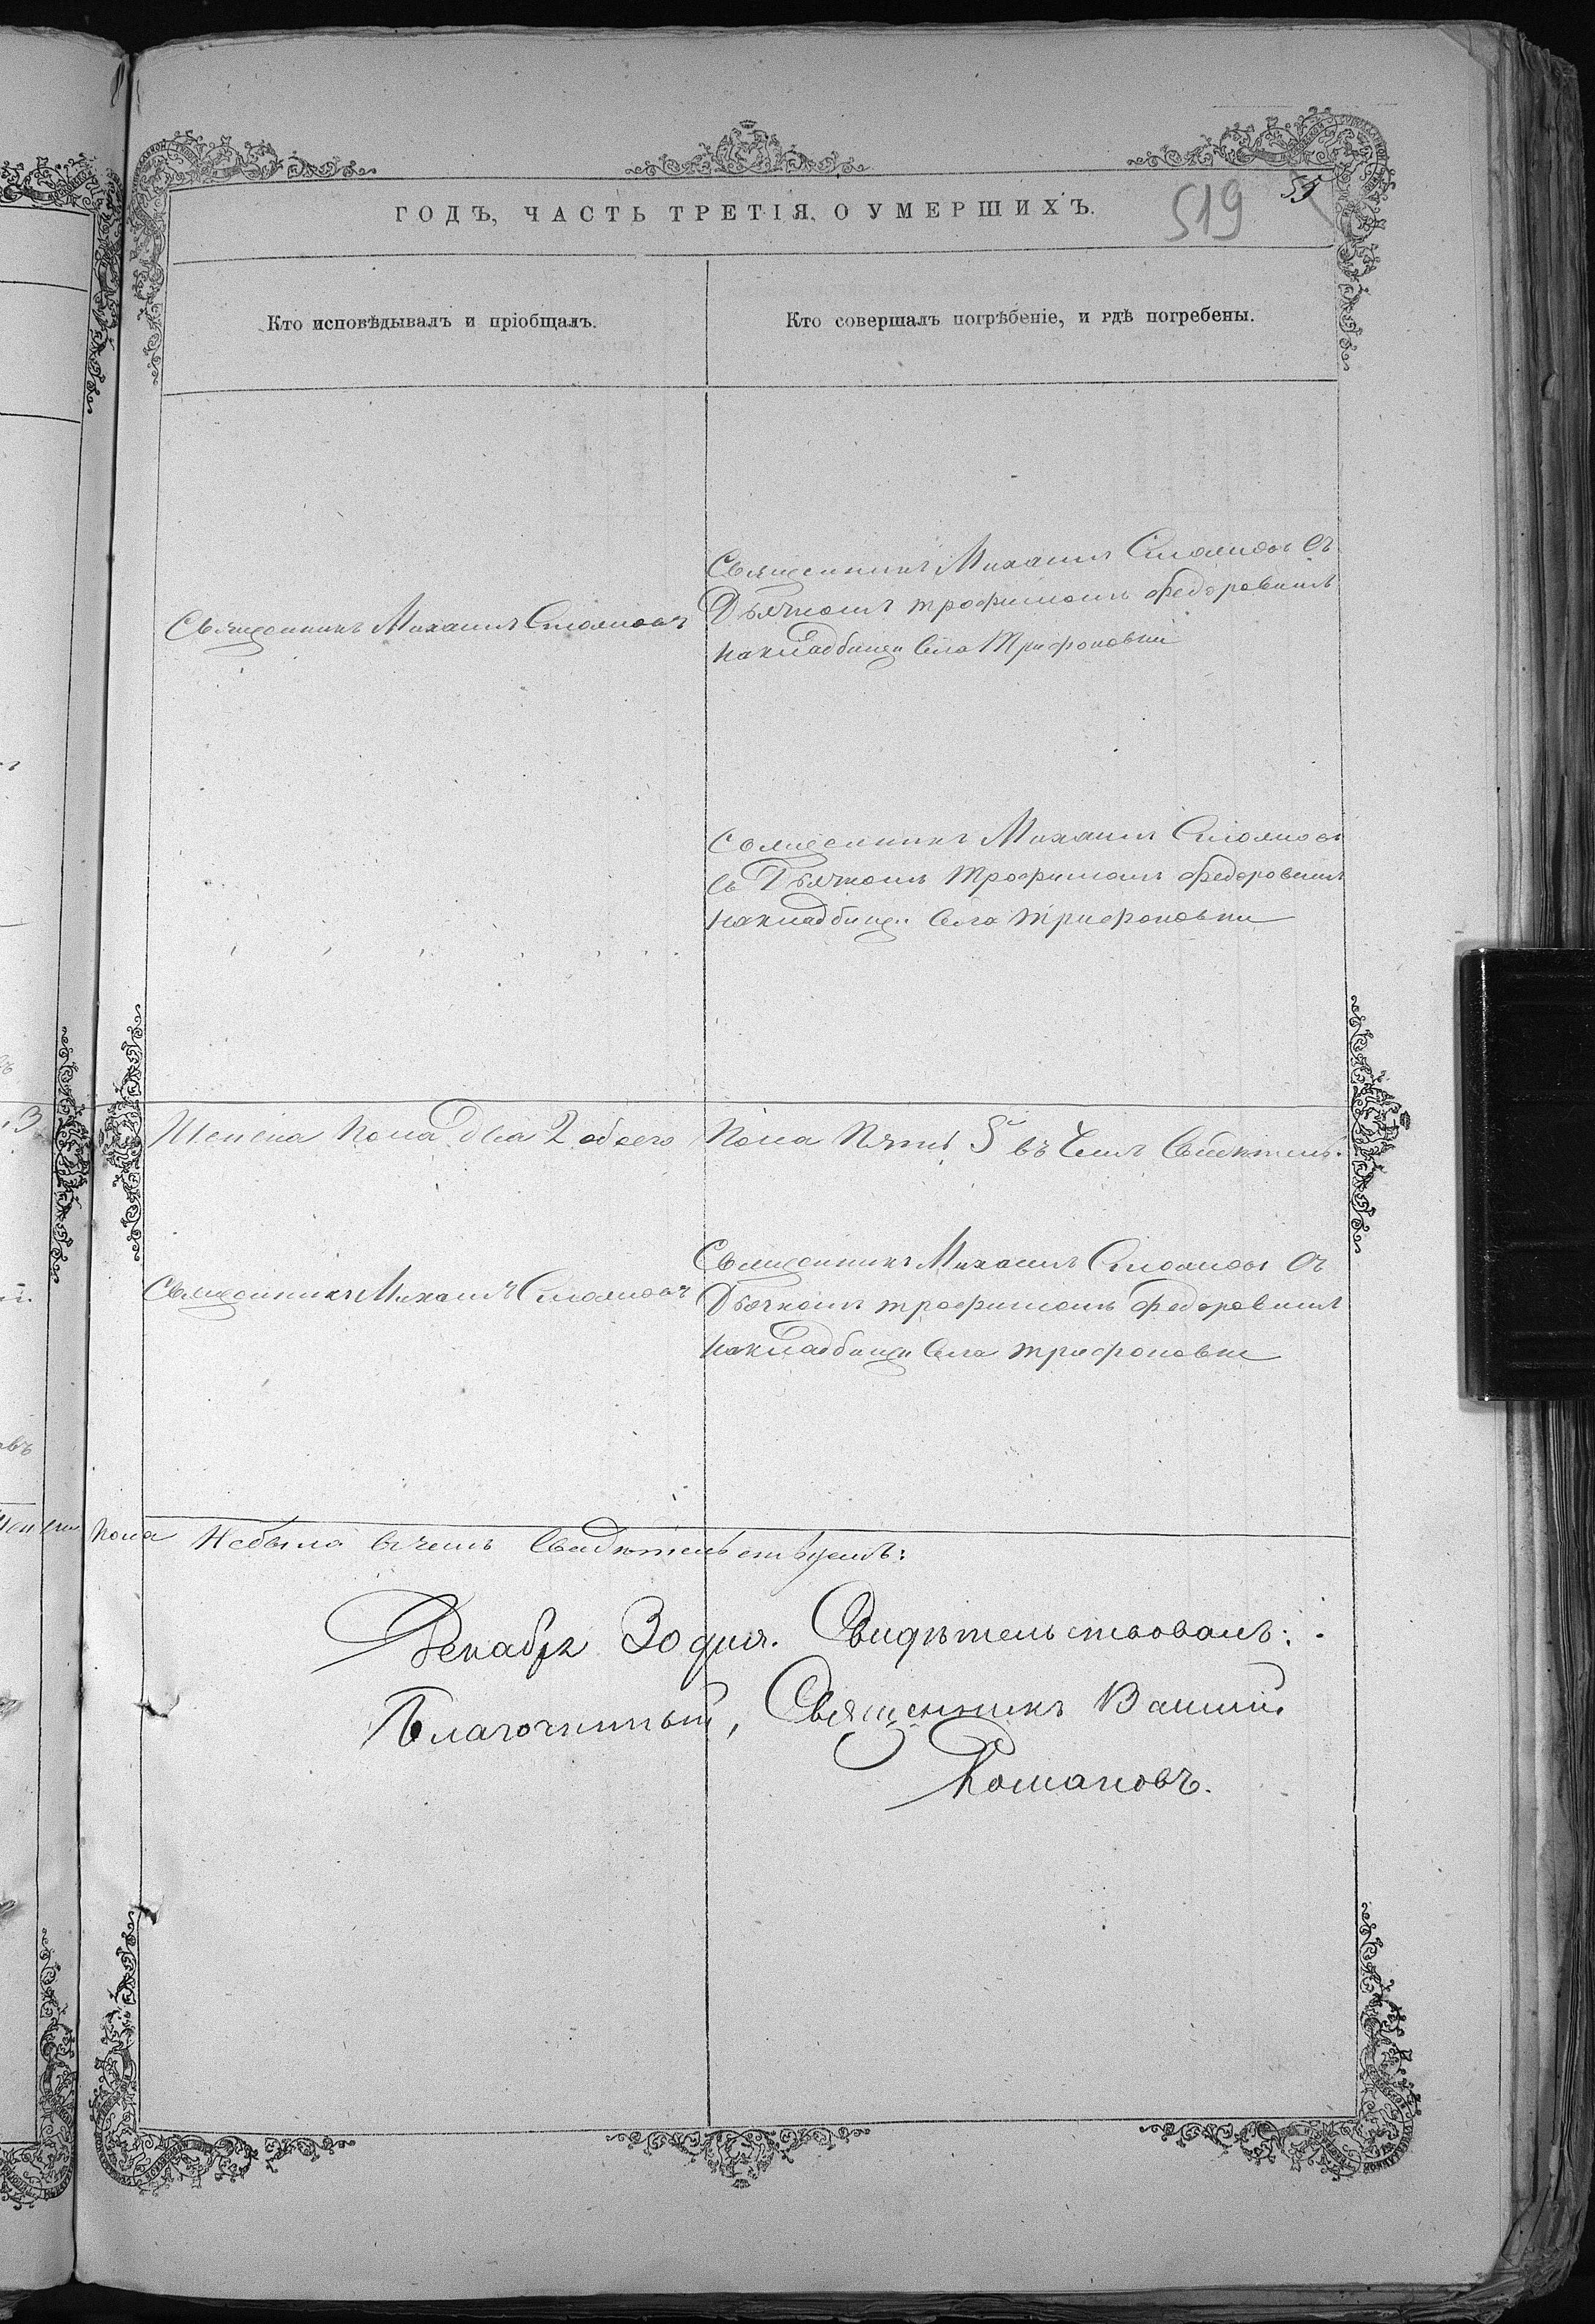 ГОДЪ, ЧАСТЬ ТРЕТІЯ, О УМЕРШИХЪ.
519
Кто исповѣдывалъ и пріобщалъ.
Кто совершалъ погрѣбеніе, и гдѣ погребены.
Священникъ Михаилъ
Священникъ Михаилъ Съ
Дьячкомъ трофимомъ Федоровымъ
накладбищи Села Трифоновки
Священникъ Михаилъ
Съ Дьячкомъ Трофимомъ Федоровымъ
накладбищи Села Трифоновки
Женска пола два 2 обоего Пола Пять 5 въ чемъ Свидѣтель.
Священникъ Михаилъ
Священникъ Михаилъ Съ
Дьячкомъ трофимомъ Федоровымъ
накладбищи Села трифоновки
пола Небыло вчемъ Свидѣтельствуемъ:
Декабря 30 дня. Свидѣтельствовалъ:
Благочинный, Священникъ
Романовъ.